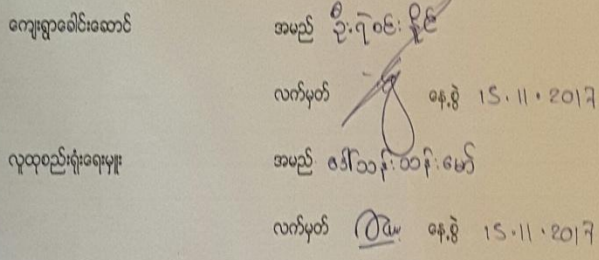 ကျေးရွာခေါင်းဆောင် အမည် ဦးရဲဝင်းနိုင်
လက်မှတ် နေ့စွဲ 15.11.2017
လူထုစည်းရုံးရေးမှူး အမည် ဒေါ်သန်းသန်းမော်
လက်မှတ် နေ့စွဲ 15.11.2017